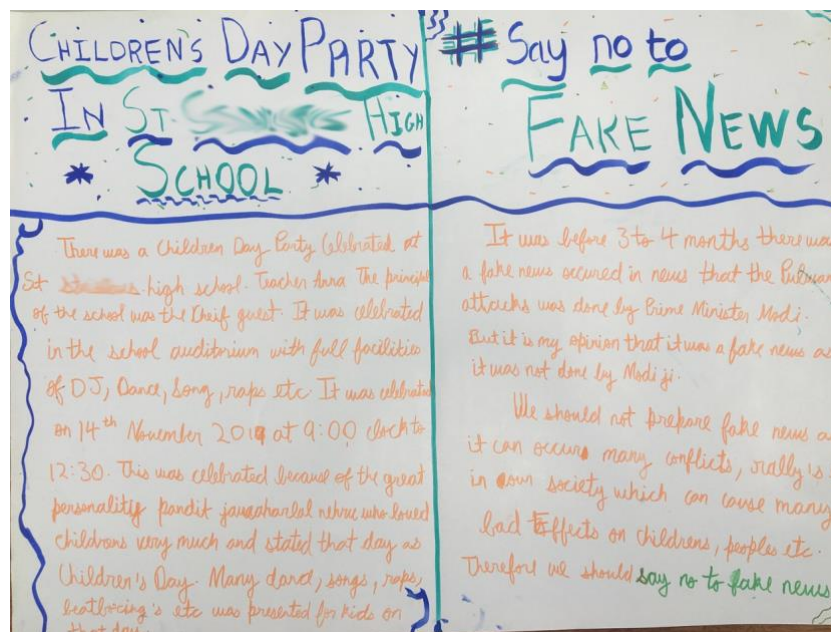 CHILDREN'S DAY PARTY
IN ST HIGH
SCHOOL
There was a Children Day Party Celebrated at
St high school. Teacher Anna The principal
of the school was the Cheif guest. It was celebrated
in the school auditorium with full facilities
of DJ, Dance, Song, raps etc It was celebrated
on 14th November 2019 at 9:00 clock to
12:30. This was celebrated because of the great
personality pandit jawaharlal nehru who loved
childrens very much and stated that day as
Children's Day. Many dance, songs, raps,
beatboxing's etc was presented for kids on
that day
#Say no to
FAKE NEWS
It was before 3 to 4 months there was
a fake news occured in news that the
attacks was done by Prime Minister Modi.
But it is my opinion that it was a fake news as
it was not done by Modi ji.
We should not prepare fake news a
it can occurs many conflicts, rally is
in own society which can cause many
bad Effects on childrens, peoples etc.
Therefore we should say no to fake news